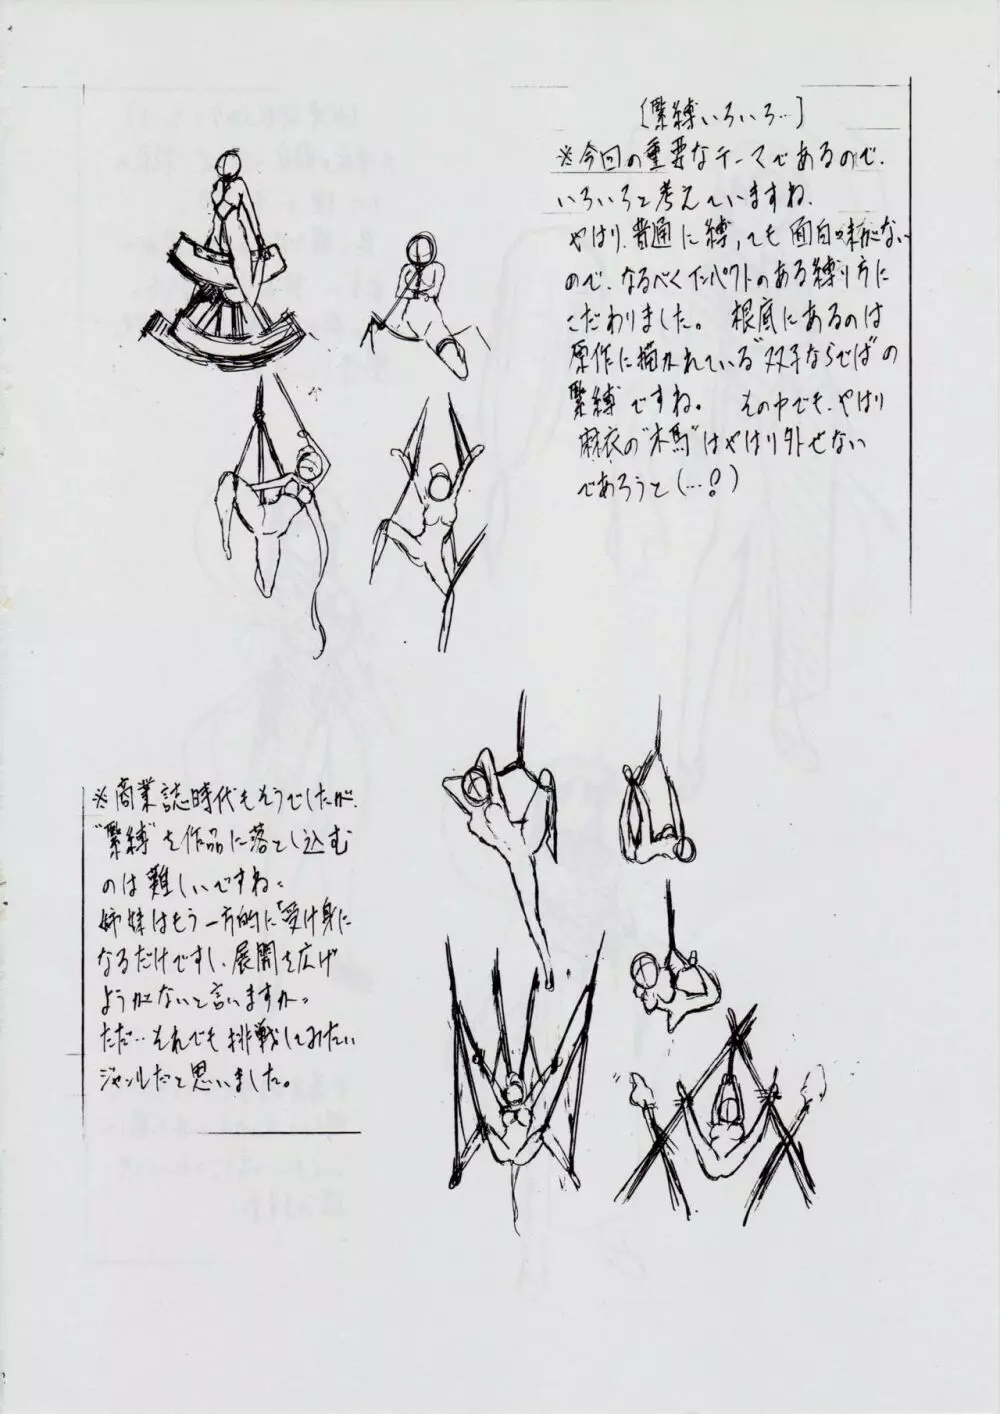 ［緊縛いろいろ…］
※今回の重要なテーマであるので、
いろいろと考えていますね。
やはり、普通に縛っても面白味がない
ので、なるべくインパクトのある縛り方に
こだわりました。根底にあるのは
原作に描かれている“双子ならでは”の
緊縛ですね。その中でも、やはり
麻衣の“木馬”はやはり外せない
であろうと（…？）
※商業誌時代もそうでしたが、
“緊縛”を作品に落とし込む
のは難しいですね。
姉妹はもう一方的に「受け身に
なるだけですし、展開を広げ
ようがないと言いますか。
ただ…それでも挑戦してみたい
ジャンルだと思いました。